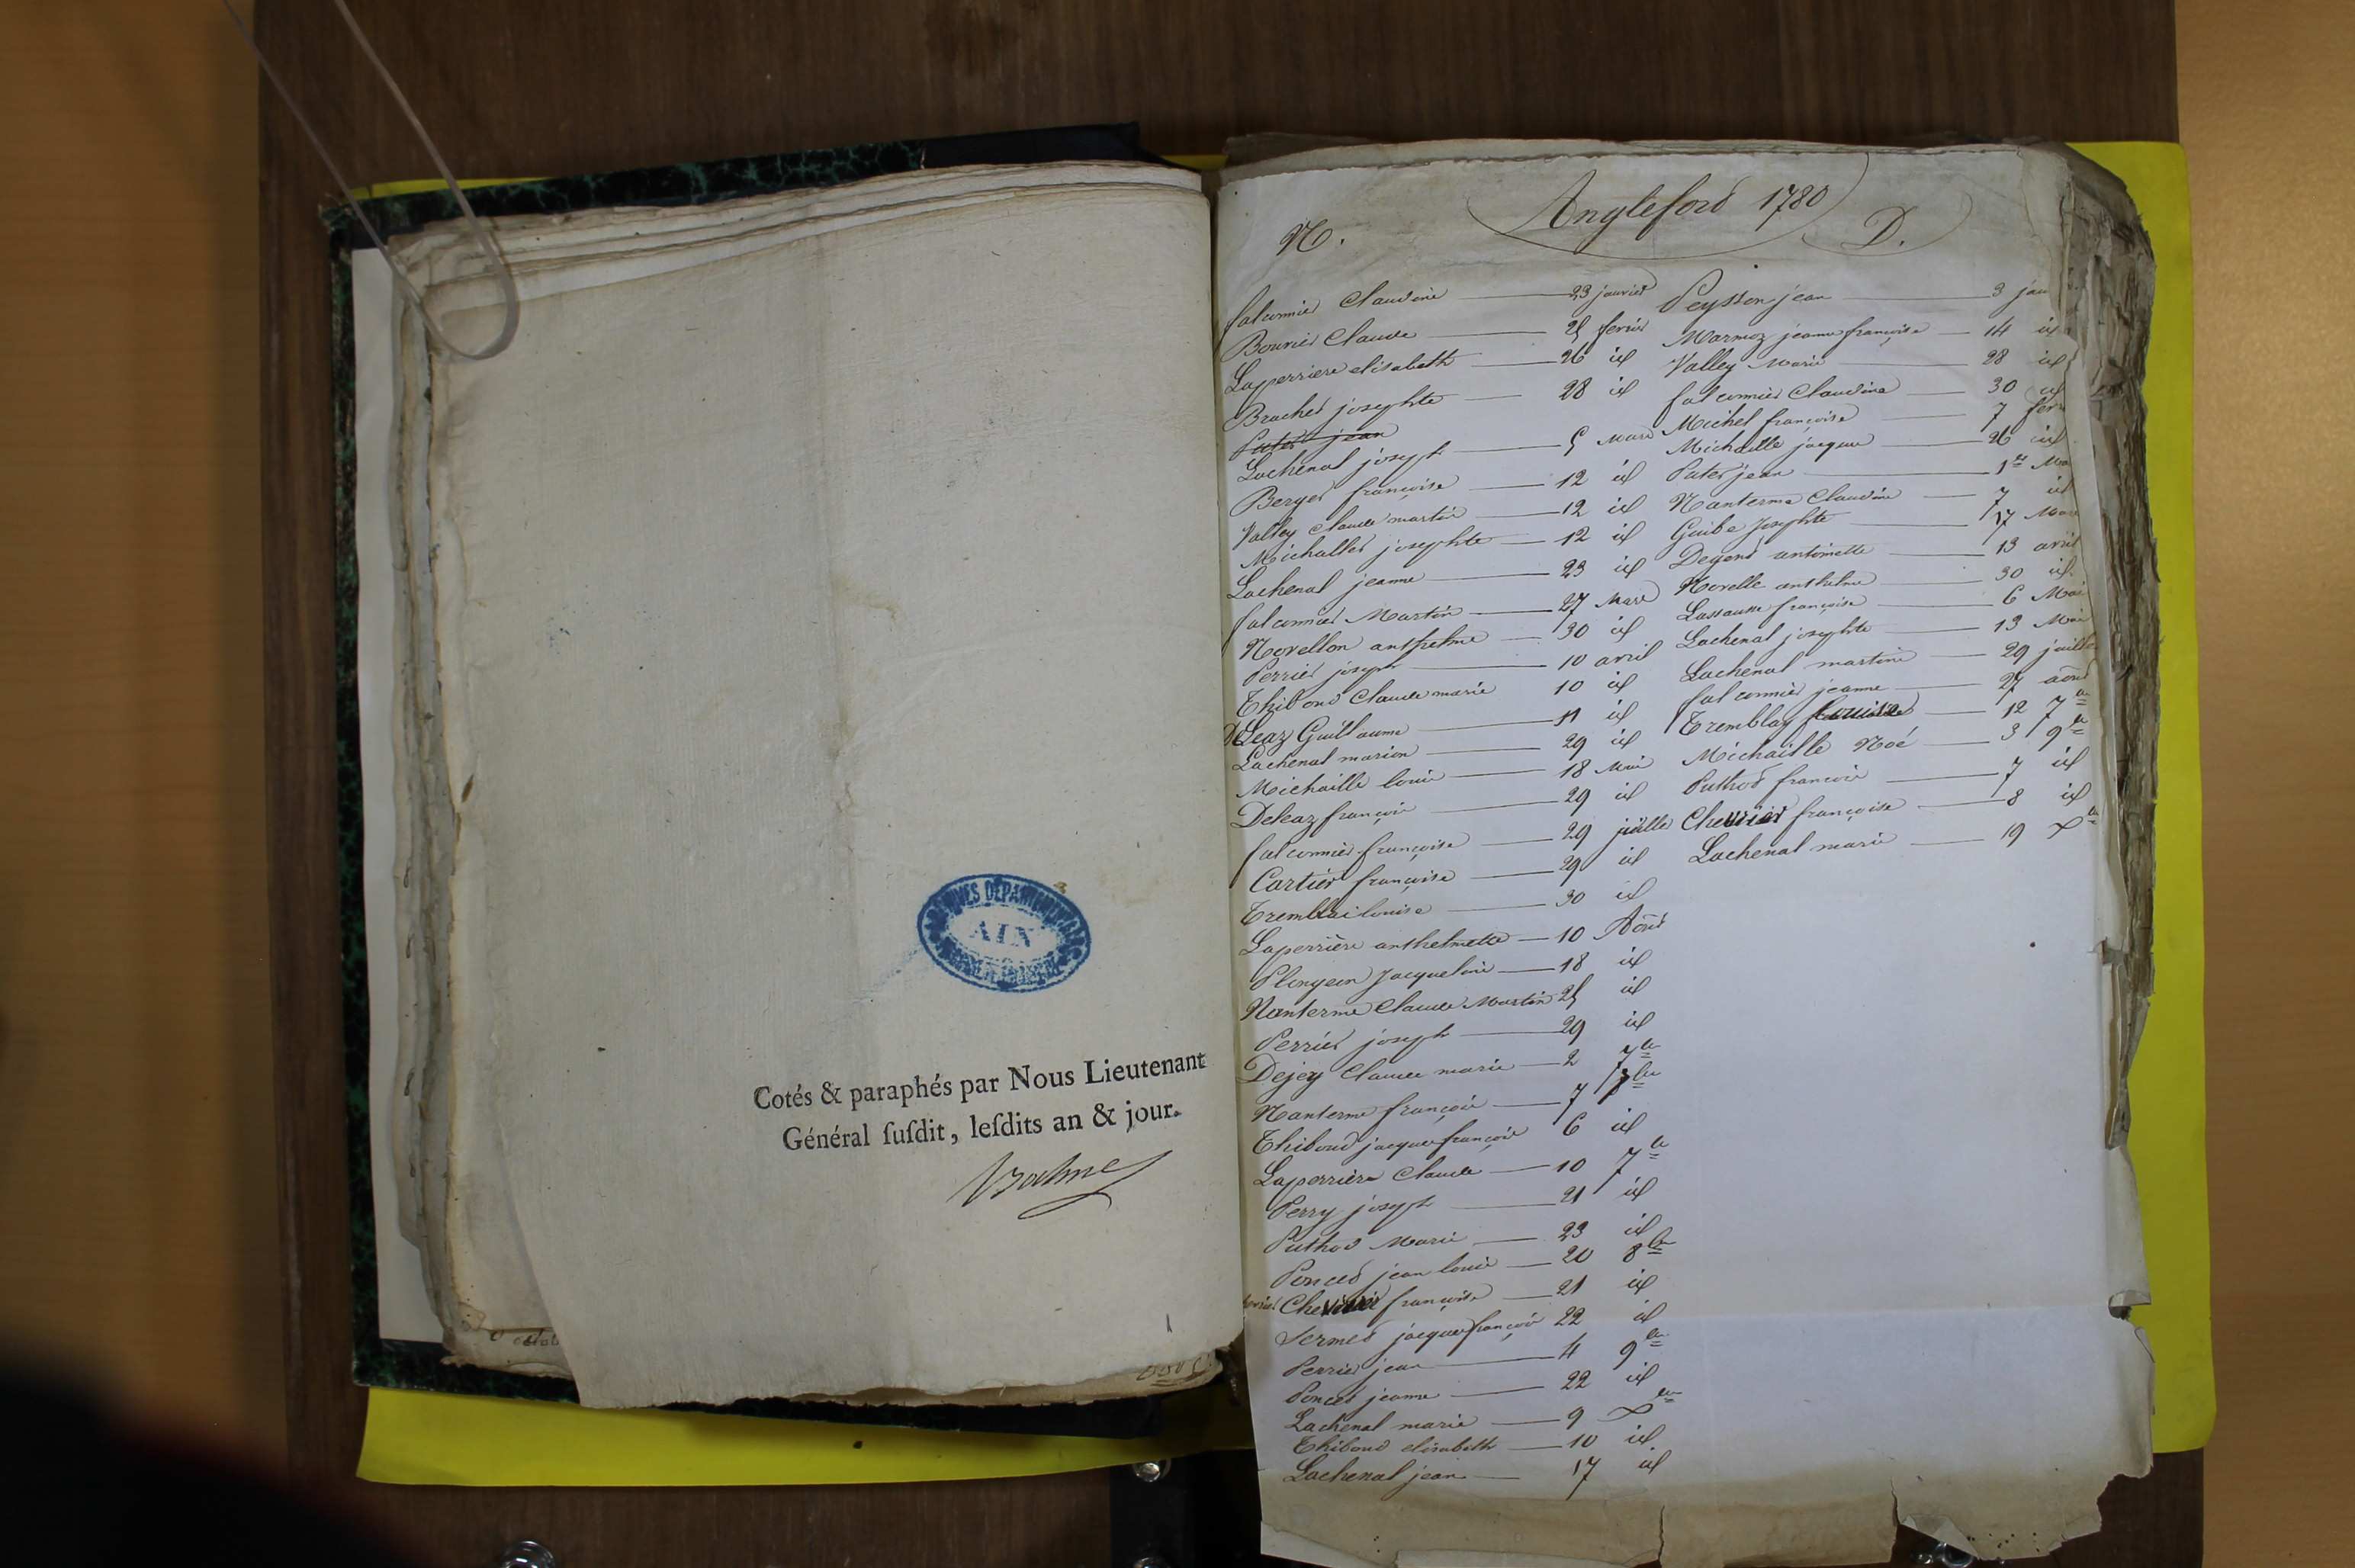 ARCHIVES DÉPARTEMENTALES
AIN
Cotés & paraphés par Nous Lieutenant
Général ſuſdit, leſdits an & jour.
Angleford 1780
N.
falconnier Claudine 23 janvier
Bouvier Claude 25 fevrier
Laperriere elisabeth 26 id
Brachet josephte 28 id
Puted jean
Lachenal joseph 5 Mars
Berger françoise 12 id
Valley Claude martin 12 id
Michallet josephte 12 id
Lachenal jeanne 23 id
falconnier Martin 27 Mars
Novellon anthelme 30 id
Perrier joseph 10 avril
Thiboud Claude marie 10 id
DeLeaz Guillaume 11 id
Lachenal marion 29 id
Michaille louis 18 Mai
Deleaz françois 29 id
falconnier françoise 29 juille
Cartier françoise 29 id
Tremblai louise 30 id
Laperrière anthelmette 10 Aout
Jacqueline 18 id
Nanterme Claude Martin 25 id
Perrier joseph 29 id
Dejey Claude marie 2 7bre
Nanterme françois 7
Thiboud jacque françois 6 id
Laperrière Claude 10 7bre
Perry joseph 21 id
Puthod Marie 23 id
Poncet jean louis 20 8bre
Chevrier françoise 21 id
Sermet jacque françois 22 id
Perrier jean 4 9bre
Poncet jeanne 22 id
Lachenal marie 9 Xbre
Thiboud elisabeth 10 id
Lachenal jean 17 id
D.
Peysson jean 3 jan
Marmoz jeanne françoise 14 id
Valley Marie 28 id
falconnier Claudine 30 id
Michel françoise 7 fevr
Michaille jacque 26 id
Puted jean 1er Ma
Nanterme Claudine 7 id
Guibe Josephte 17 Mars
Degend antoinette 13 avril
Novelle anthelme 30 id
Lassausse françoise 6 Mai
Lachenal josephte 13 Mai
Lachenal martine 29 juille
falconnier jeanne 27 aout
Tremblay Louise 12 7bre
Michaille Noé 3 9bre
Puthod françois 7 id
Chevrier françoise 8 id
Lachenal marie 19 Xbre